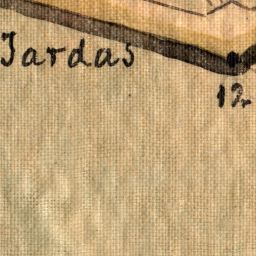 Jardas
12.